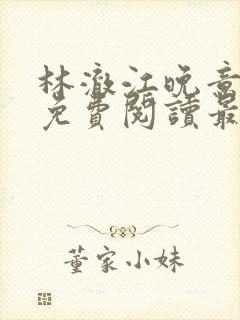 林澈江晚音
免費閱讀最
董家小妹